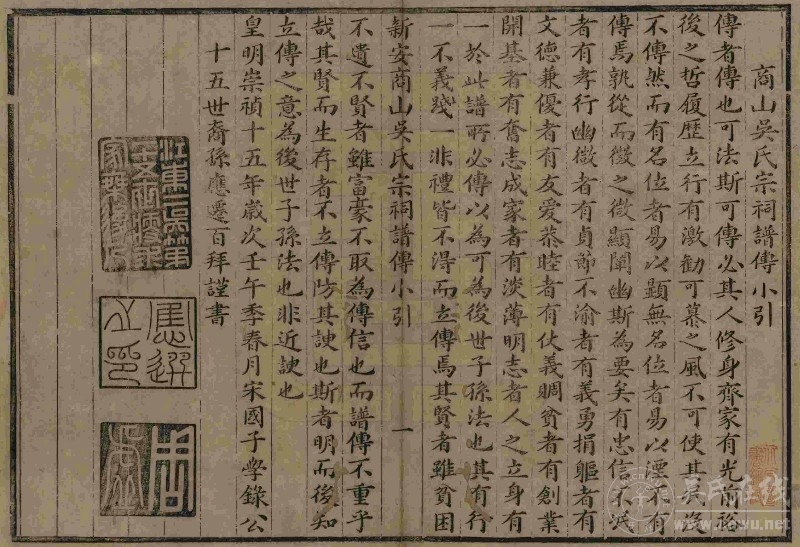 商山吳氏宗祠譜傳小引
傳者傳也可法斯可傳必其人修身齊家有光前裕
後之哲履歷立行有激勸可慕之風不可使其
不傳然而有名位者易以顯無名位者易以湮不有
傳焉孰從而徵之徵顯闡幽斯為要矣有忠信不
者有孝行幽徵者有貞節不渝者有義勇捐軀者有
文德兼優者有友愛恭睦者有仗義賙貧者有創業
開基者有奮志成家者有淡薄明志者人之立身有
一於此譜所必傳以為可為後世子孫法也其有行
一不義踐一非禮皆不得而立傳焉其賢者雖貧困
新安商山吳氏宗祠譜傳小引
一
不遺不賢者雖富豪不取為傳信也而譜傳不重乎
哉其賢而生存者不立傳防其諛也斯者明而後知
立傳之意為後世子孫法也非近諛也
皇明崇禎十五年歲次壬午季春月宋國子學錄公
十五世裔孫應遷百拜謹書
吳氏在线
www.cnwu.net